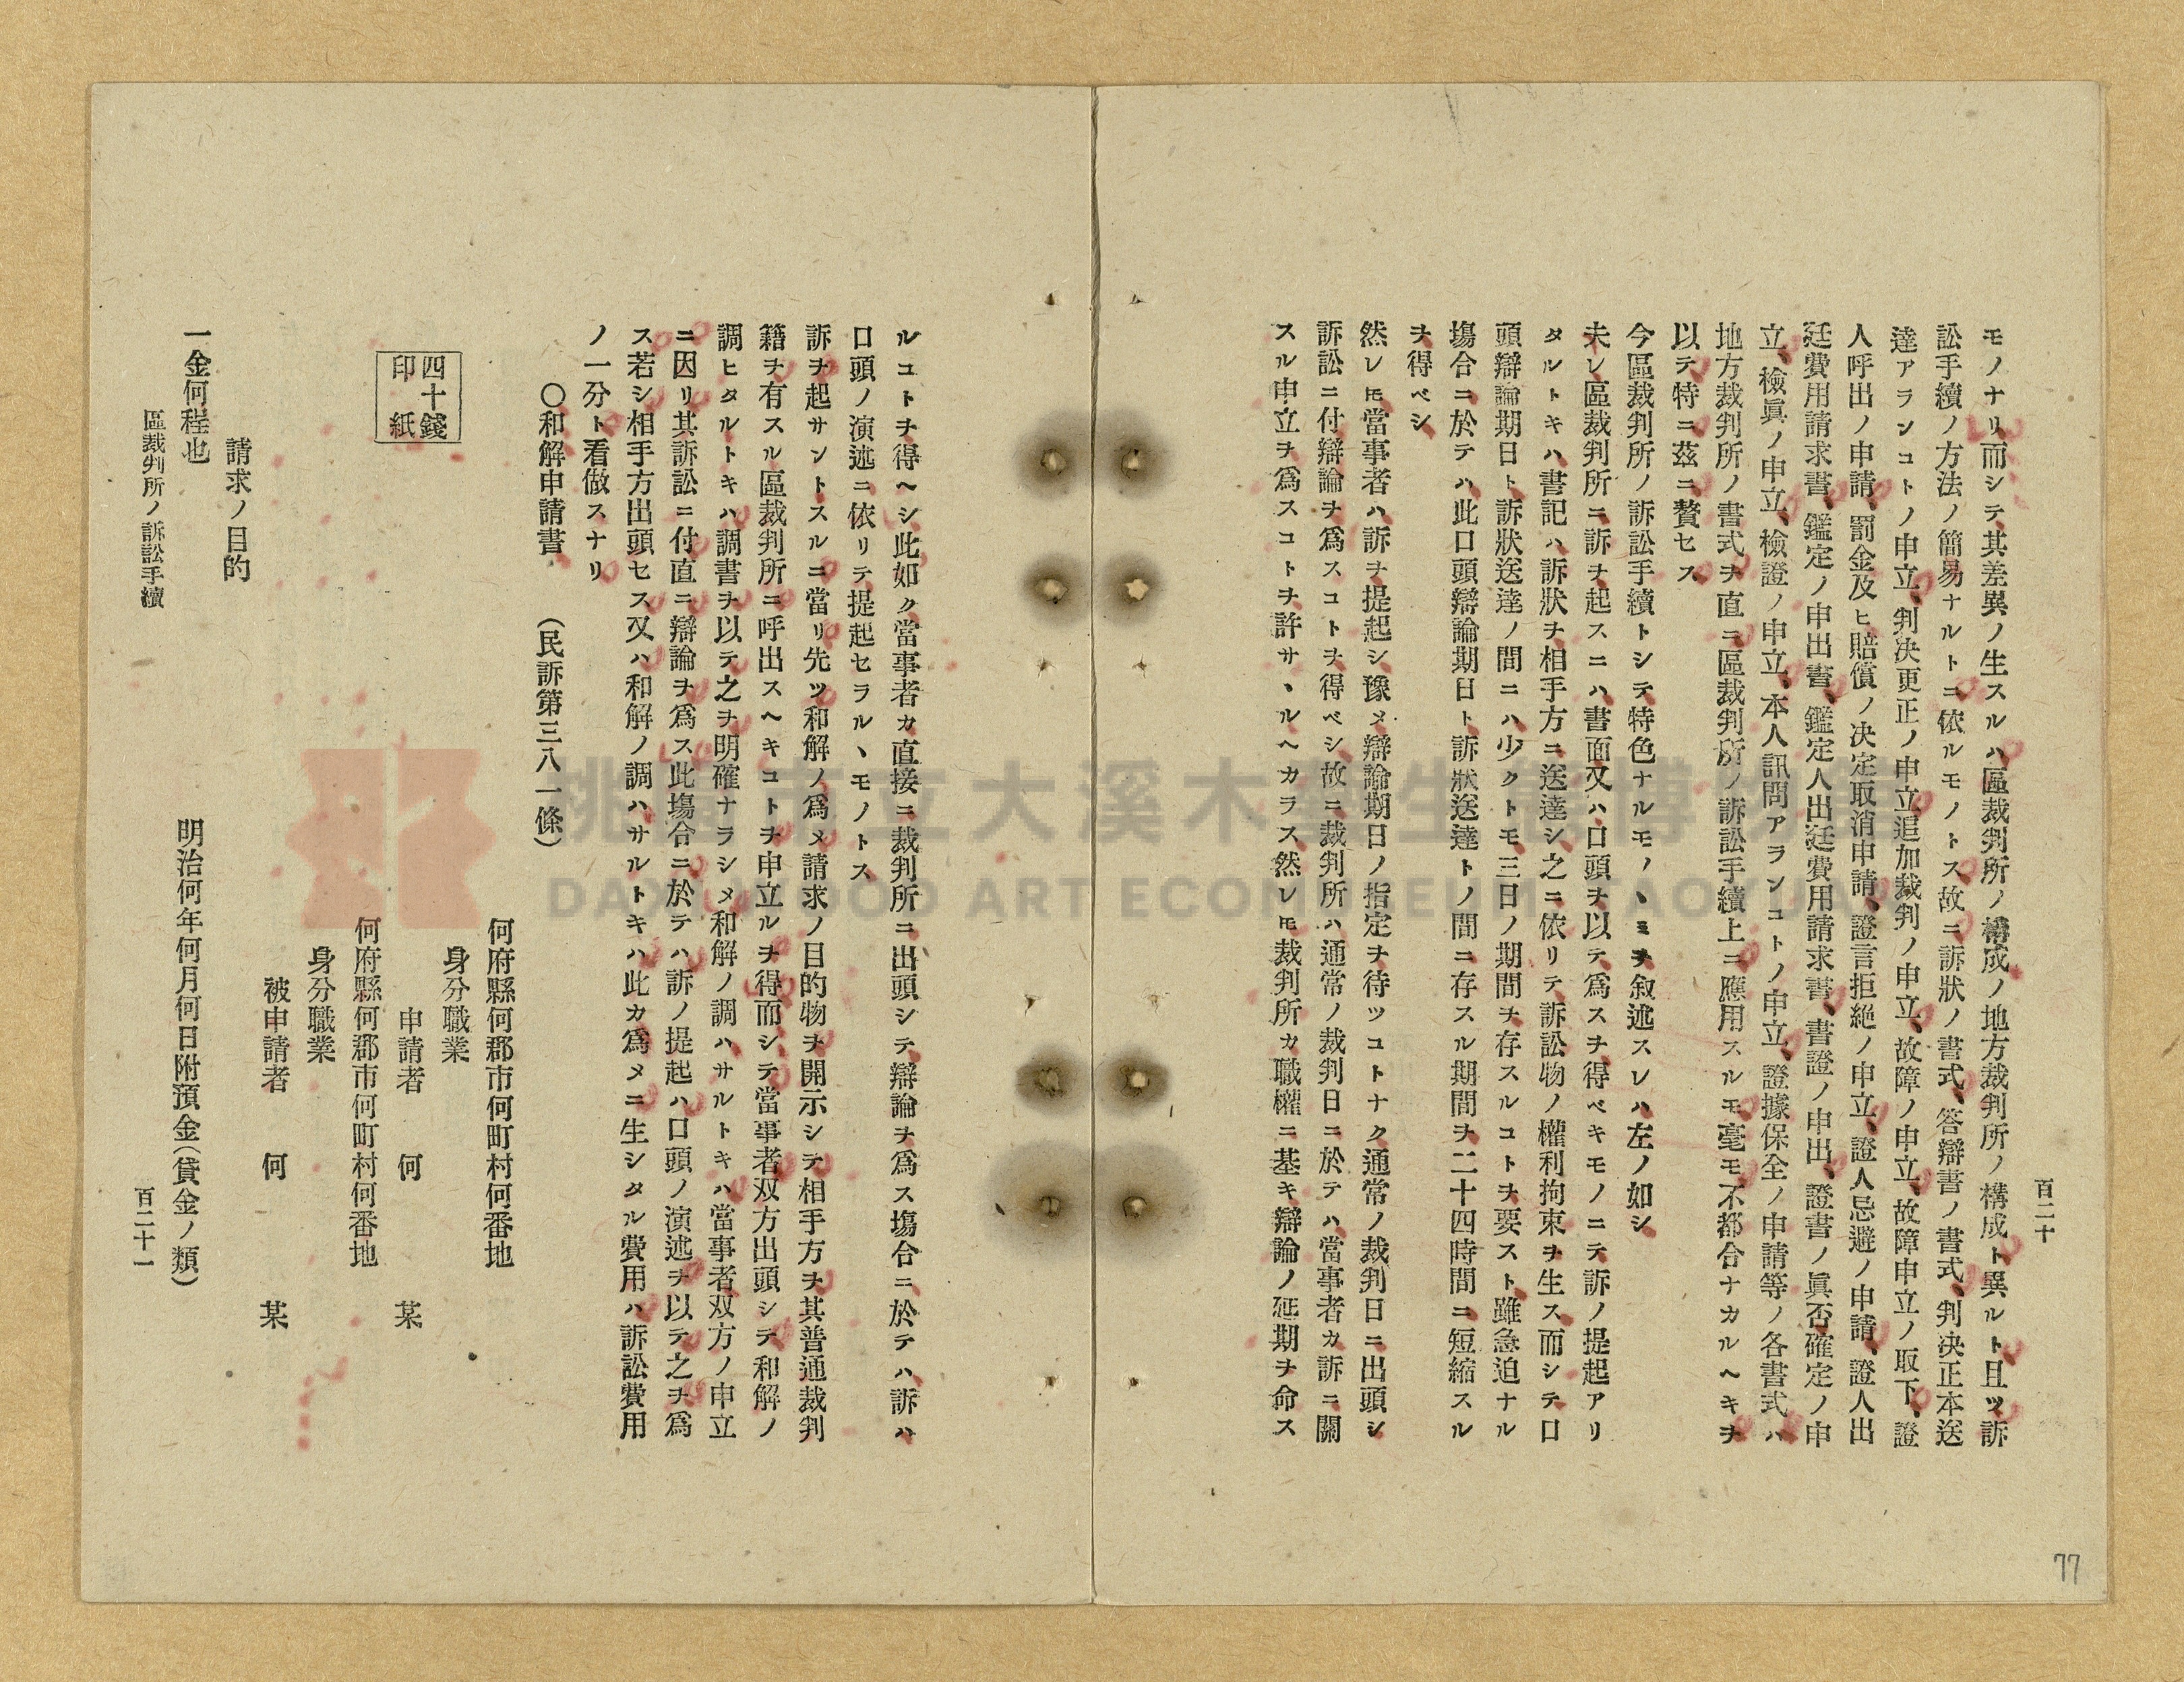 百二十
モノナリ而シテ其差異ノ生スルハ區裁判所ノ構成ノ地方裁判所ノ構成ト異ルト、且ツ訴
訟手續ノ方法ノ簡易ナルトニ依ルモノトス故ニ訴狀ノ書式、答辯書ノ書式、判决正本送
達アランコトノ申立、判决更正ノ申立、追加裁判ノ申立、故障ノ申立、故障申立ノ取下、證
人呼出ノ申請、罰金及ヒ賠償ノ决定取消申請、證言拒絶ノ申立、證人忌避ノ申請、證人出
廷費用請求書、鑑定ノ申出書、鑑定人出廷費用請求書、書證ノ申出、證書ノ眞否確定ノ申
立、檢眞ノ申立、檢證ノ申立、本人訊問アランコトノ申立、證據保全ノ申請等ノ各書式ハ
地方裁判所ノ書式ヲ直ニ區裁判所ノ訴訟手續上ニ應用スルモ毫モ不都合ナカルヘキヲ
以テ特ニ茲ニ贅セス
今區裁判所ノ訴訟手續トシテ特色ナルモノヽミヲ叙述スレハ左ノ如シ
夫レ區裁判所ニ訴ヲ起スニハ書面又ハ口頭ヲ以テ爲スヲ得ベキモノニテ訴ノ提起アリ
タルトキハ書記ハ訴狀ヲ相手方ニ送達シ之ニ依リテ訴訟物ノ權利拘束ヲ生ス而シテ口
頭辯論期日ト訴狀送達ノ間ニハ少クトモ三日ノ期間ヲ存スルコトヲ要スト雖急迫ナル
塲合ニ於テハ此口頭辯論期日ト訴狀送達トノ間ニ存スル期間ヲ二十四時間ニ短縮スル
ヲ得ベシ
然レ𪜈當事者ハ訴ヲ提起シ豫メ辯論期日ノ指定ヲ待ツコトナク通常ノ裁判日ニ出頭シ
訴訟ニ付辯論ヲ爲スコトヲ得ベシ故ニ裁判所ハ通常ノ裁判日ニ於テハ當事者カ訴ニ關
スル申立ヲ爲スコトヲ許サヽルヘカラス然レ𪜈裁判所カ職權ニ基キ辯論ノ延期ヲ命ス
ルコトヲ得ヘシ此如ク當事者カ直接ニ裁判所ニ出頭シテ辯論ヲ爲ス塲合ニ於テハ訴ハ
口頭ノ演述ニ依リテ提起セラルヽモノトス
訴ヲ起サントスルニ當リ先ツ和解ノ爲メ請求ノ目的物ヲ開示シテ相手方ヲ其普通裁判
籍ヲ有スル區裁判所ニ呼出スヘキコトヲ申立ルヲ得而シテ當事者双方出頭シテ和解ノ
調ヒタルトキハ調書ヲ以テ之ヲ明確ナラシメ和解ノ調ハサルトキハ當事者双方ノ申立
ニ因リ其訴訟ニ付直ニ辯論ヲ爲ス此塲合ニ於テハ訴ノ提起ハ口頭ノ演述ヲ以テ之ヲ爲
ス若シ相手方出頭セス又ハ和解ノ調ハサルトキハ此カ爲メニ生シタル費用ハ訴訟費用
ノ一分ト看做スナリ
〇和解申請書　（民訴第三八一條）
何府縣何郡市何町村何番地
身分職業
申請者　何　某
四十錢
印紙
何府縣何郡市何町村何番地
身分職業
被申請者　何　某
請求ノ目的
一金何程也　明治何年何月何日附預金（貸金ノ類）
區裁判所ノ訴訟手續
百二十一
77
桃園市立大溪木藝生態博物館
DAXI WOOD ART ECOMUSEUM, TAOYUAN